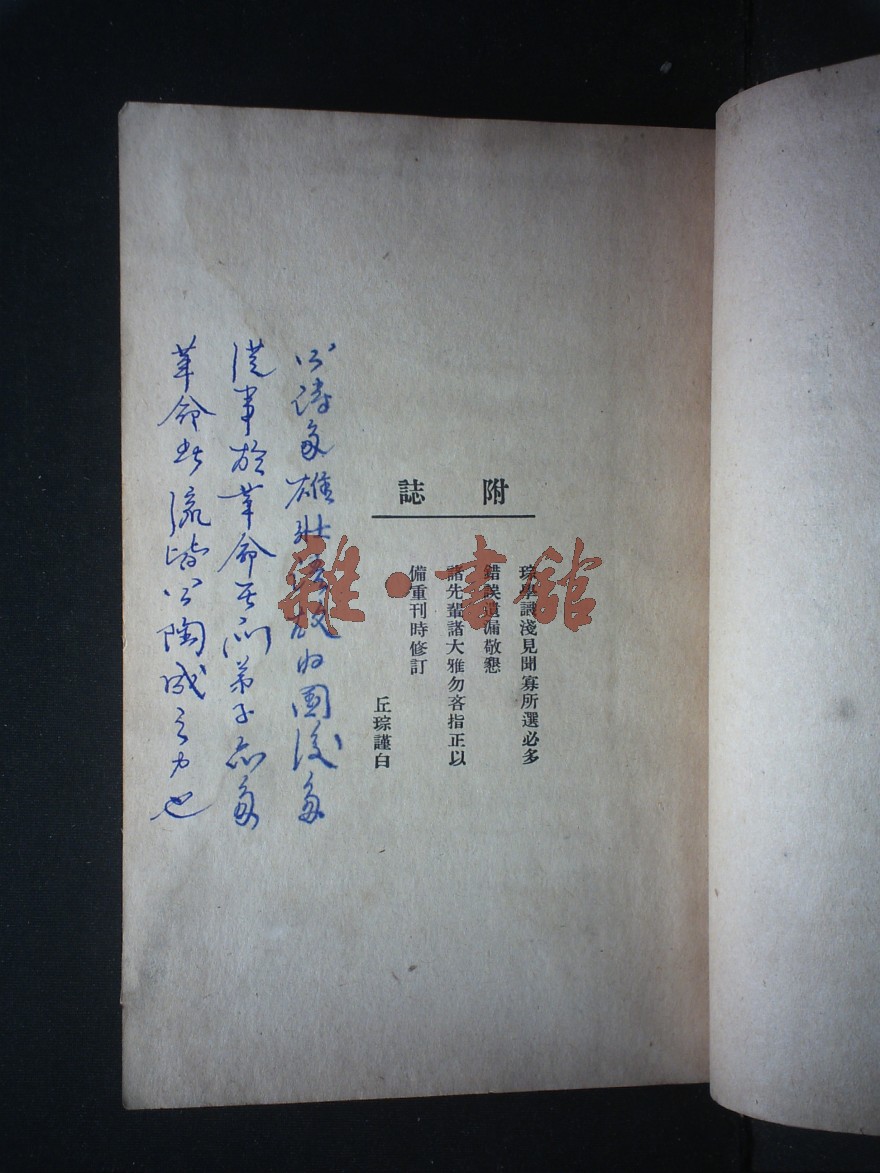 附誌
琮學識淺見聞寡所選必多
錯誤遺漏敬懇
諸先輩諸大雅勿吝指正以
備重刊時修訂
丘琮謹白
公詩多雄壯語故國後多
從事於革命其門弟子亦多
革命者流皆公陶成之力也
雜·書館